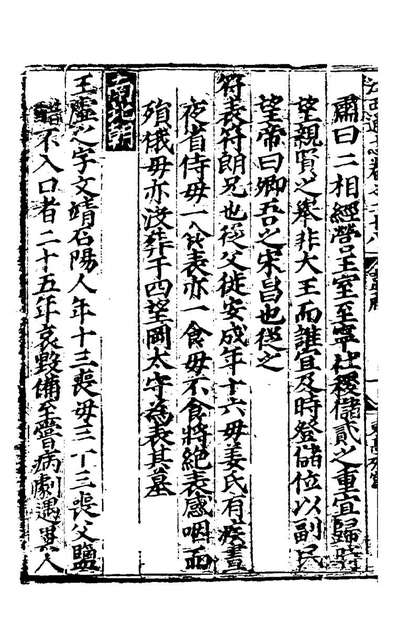 江西通志卷之二十八
肅曰二相經營王室至寧社稷儲貳之重宜歸
望親賢之舉非大王而誰宜及時登儲位以副民
望帝曰卿吾之宋昌也從之
符表符朗兄也從父徙安成年十六母姜氏有疾晝
夜省侍母一飱表亦一食母不食將絶表感咽而
殞俄母亦沒葬于四望岡太守為表其墓
南北朝
王虛之字文靖石陽人年十三喪母三十三喪父鹽
醋不入口者二十五年哀毀備至嘗病劇遇異人